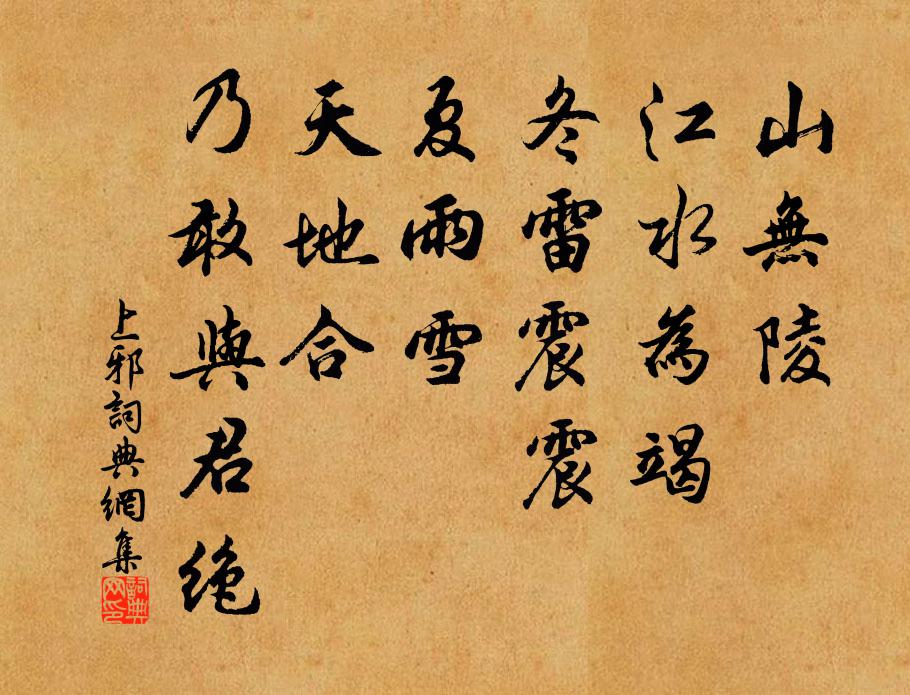 山無陵
江水為竭
冬雷震震
夏雨雪
天地合
乃敢與君绝
上邪詞典網集
詞典
网印